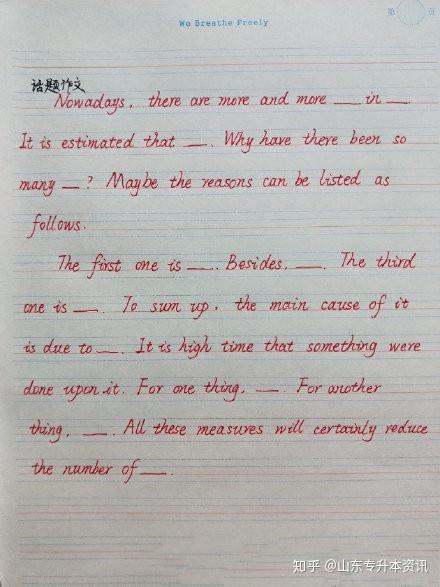 第 页
We Breathe Freely
话题作文
Nowadays, there are more and more __ in __.
It is estimated that __. Why have there been so
many __? Maybe the reasons can be listed as
follows.
The first one is __. Besides, __. The third
one is __. To sum up, the main cause of it
is due to __. It is high time that something were
done upon it. For one thing, __. For another
thing, __. All these measures will certainly reduce
the number of __.
知乎 @山东专升本资讯